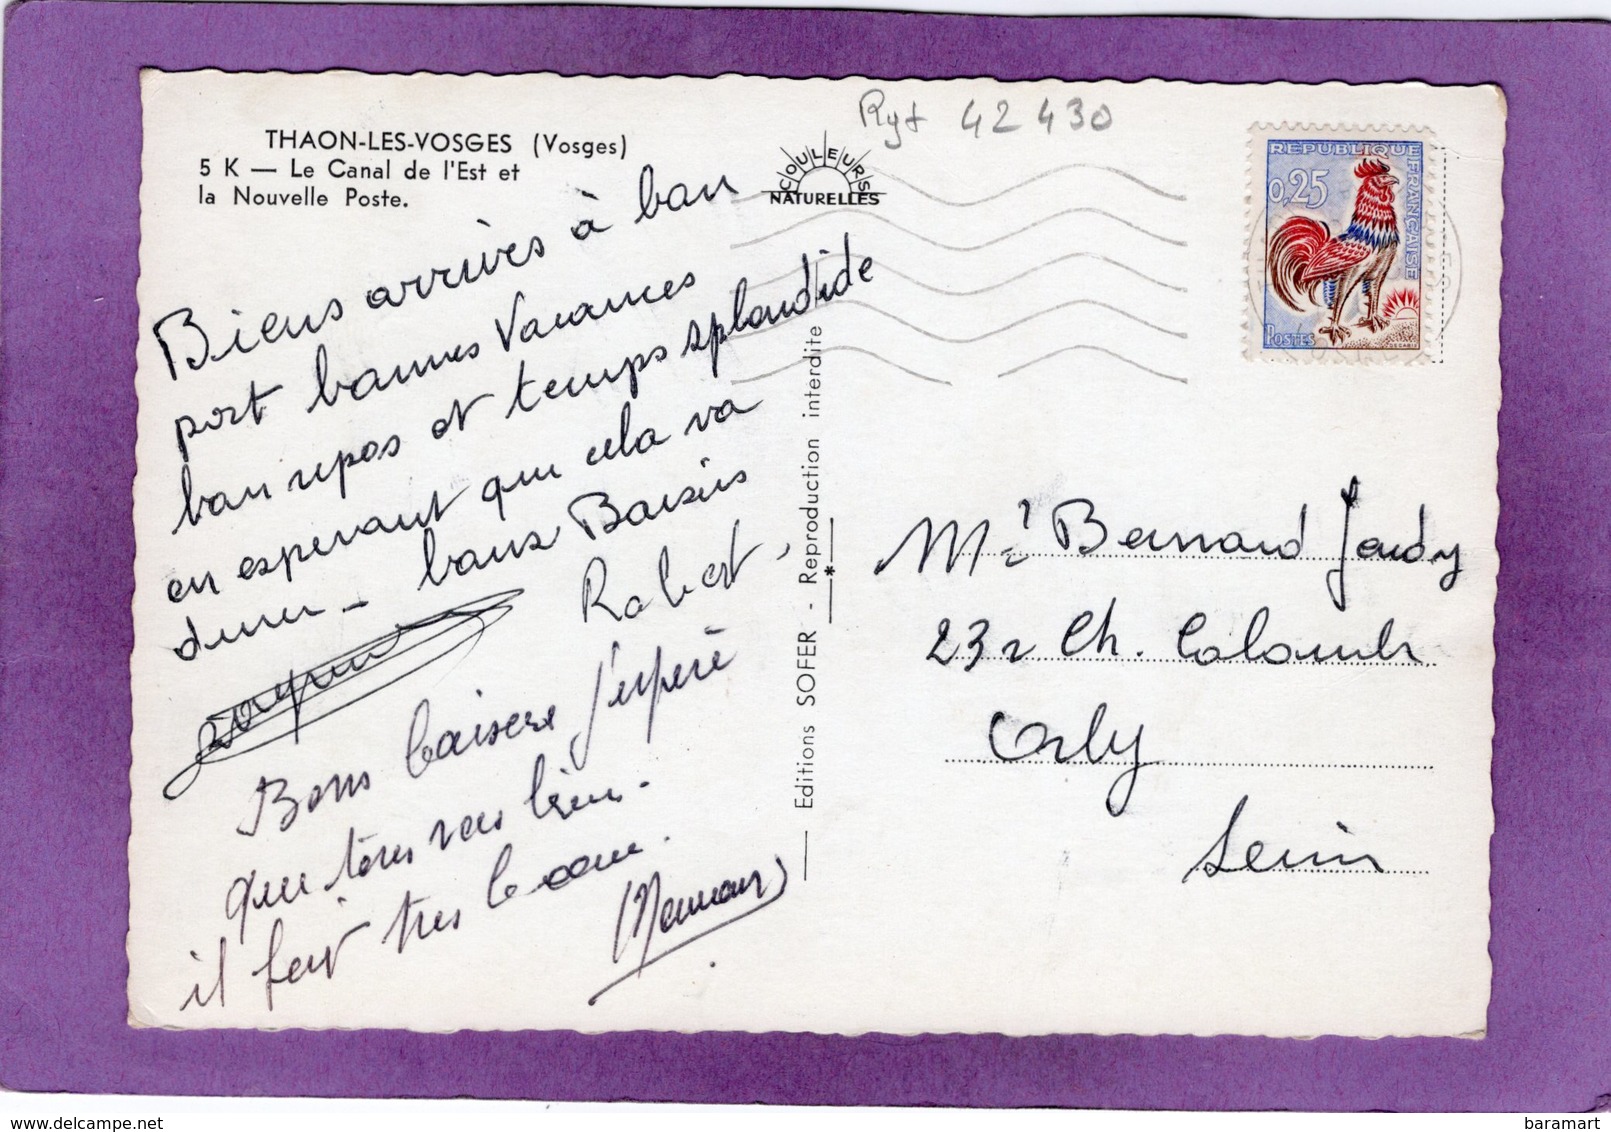 THAON-LES-VOSGES (Vosges)
5 K — Le Canal de l'Est et
la Nouvelle Poste.
COULEURS
NATURELLES
42 430
REPUBLIQUE FRANÇAISE
0,25
POSTES
Biens arrivés à bon
port bonnes Vacances
bon repos et temps splendide
en esperant que cela va
durer - bons Baisers
Robert
Bons baisers j'espère
que tous vas bien.
il fait très beau.
Editions SOFER - Reproduction interdite
Mr Bernard
23 r Ch. Colomb
Orly
Seine
baramart